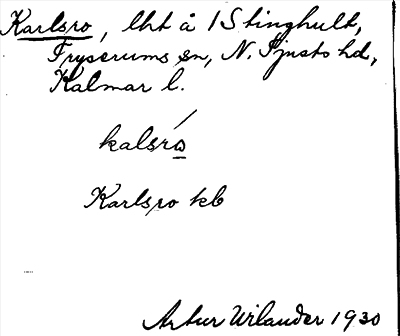 Karlsro, lht å 1 Stinghult,
Fryserums sn, N. Tjusts hd,
Kalmar l.
kalsro
Karlsro kb
Artur Wilander 1930